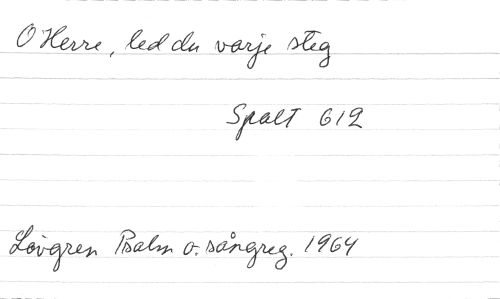 O Herre, led du varje steg
Spalt 612
Lövgren Psalm o. sångreg. 1964